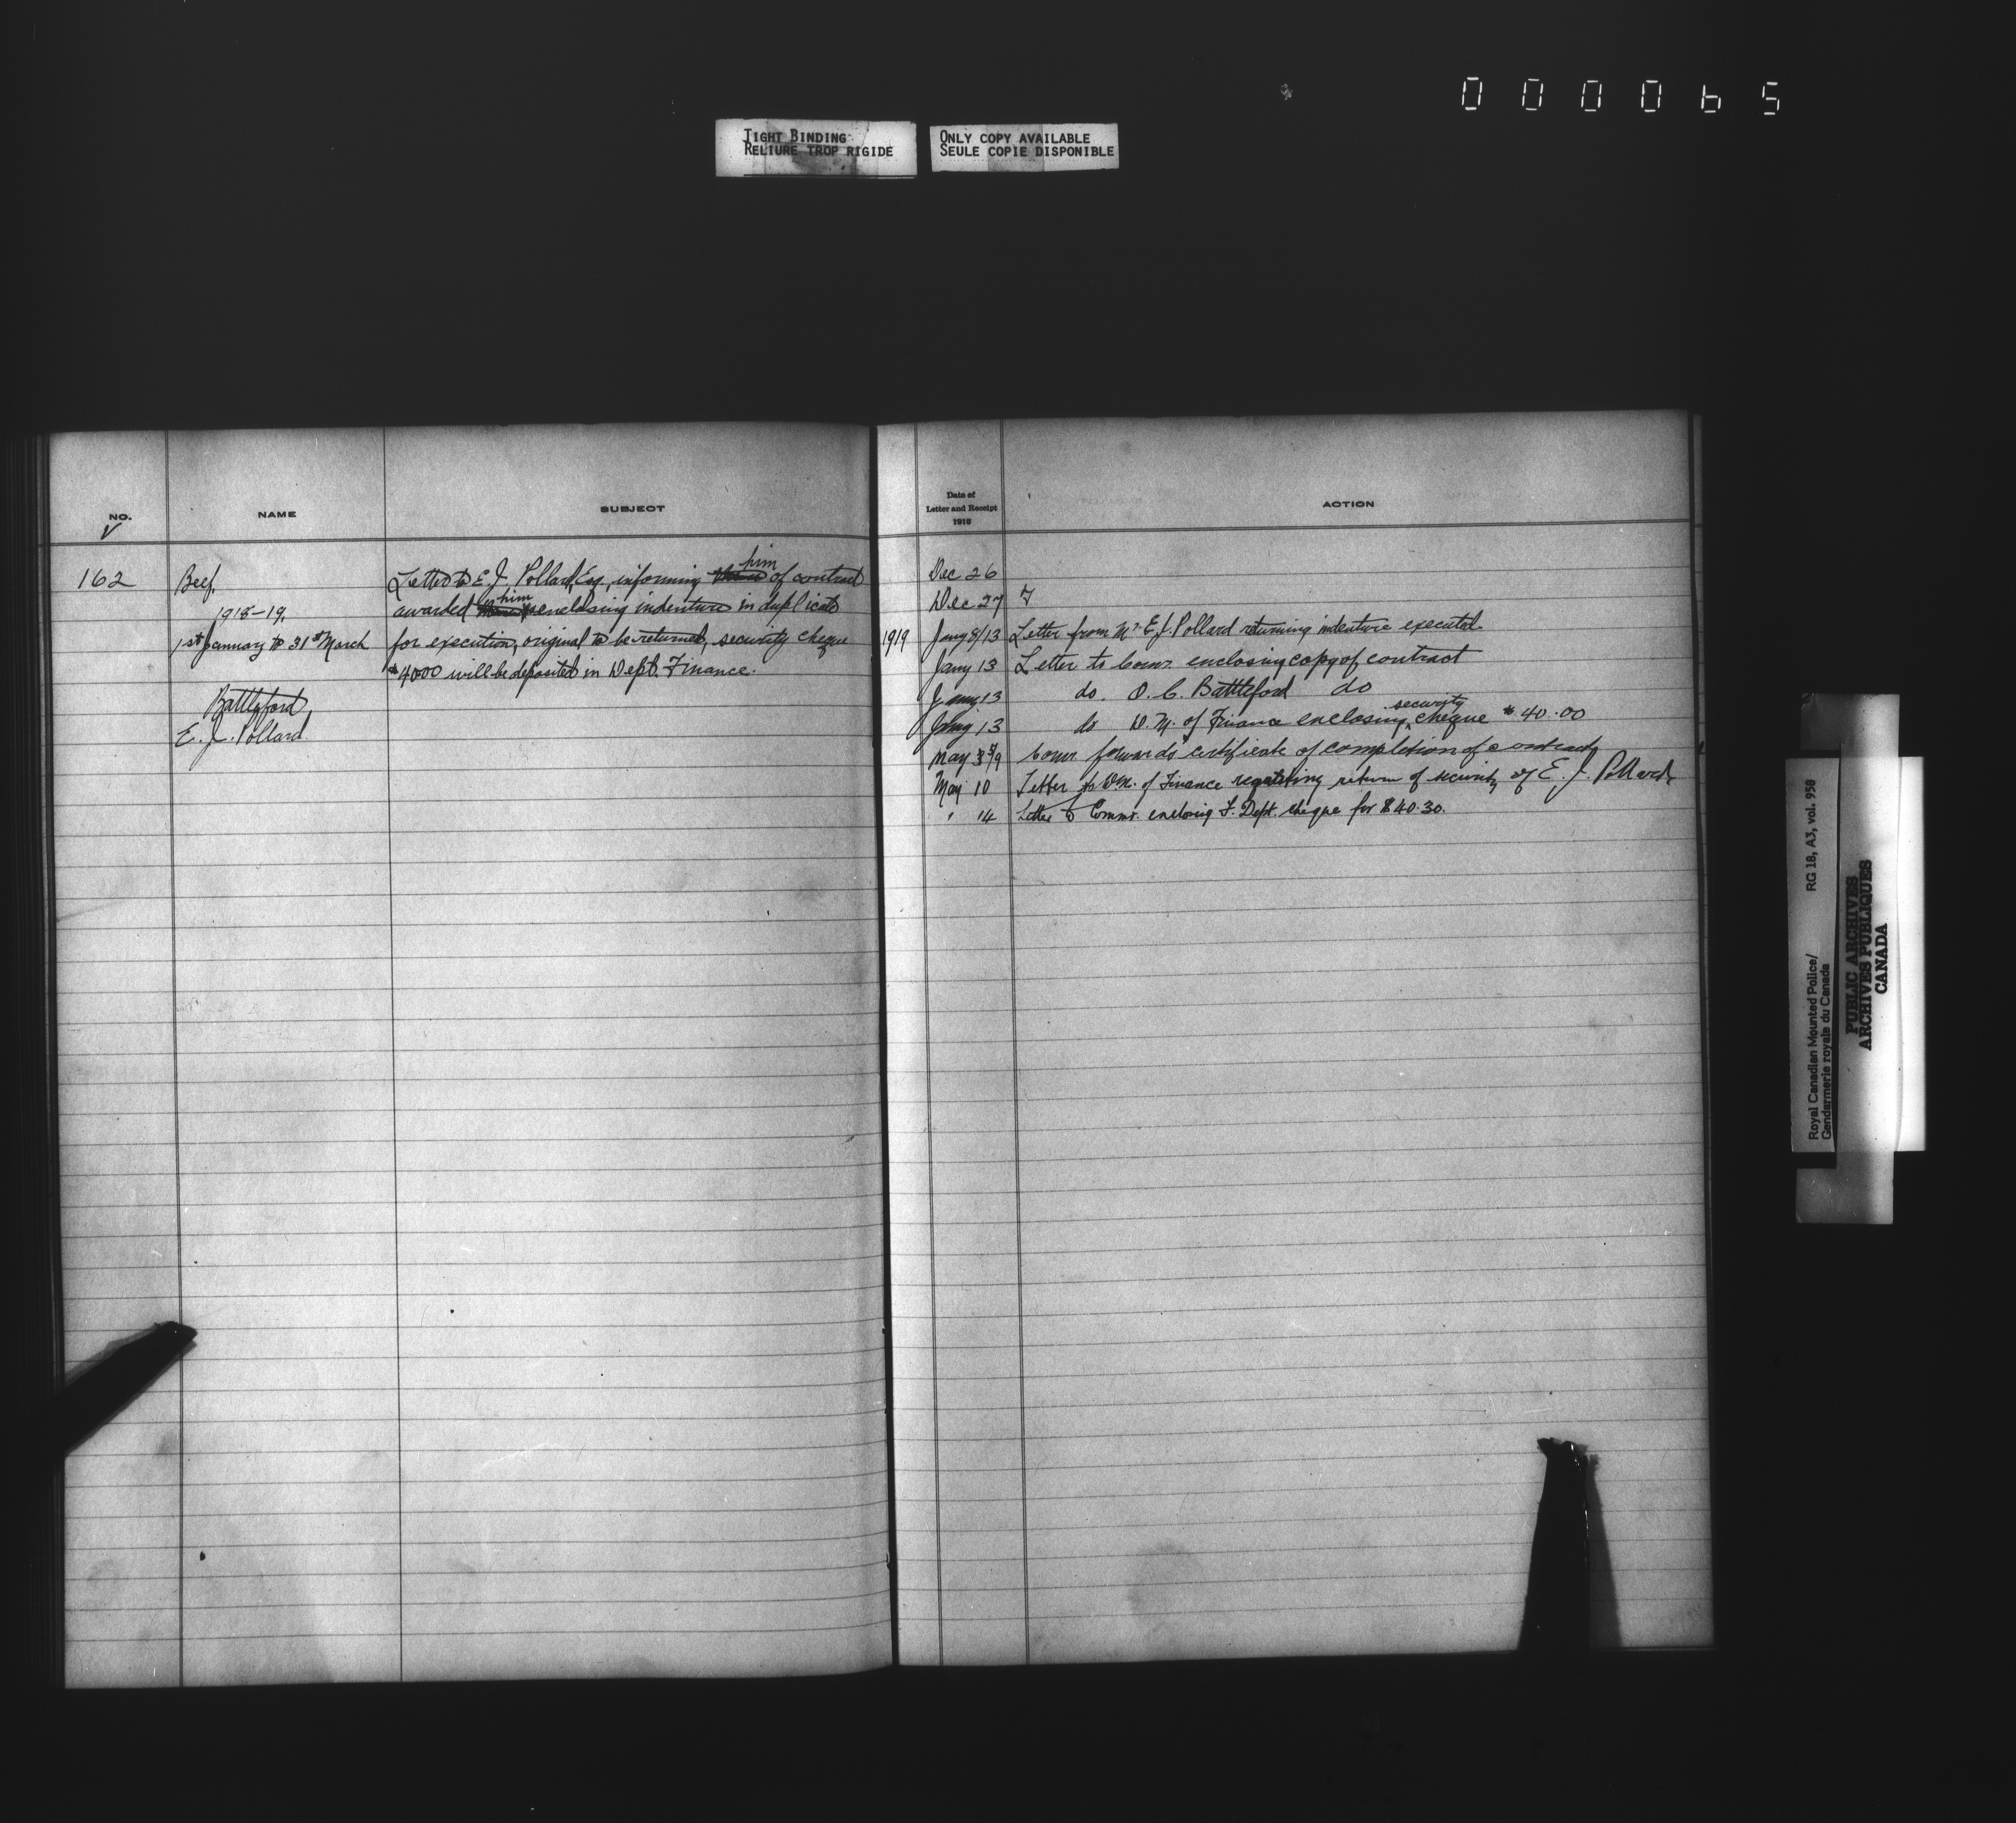 000065
TIGHT BINDING
RELIURE TROP RIGIDE
ONLY COPY AVAILABLE
SEULE COPIE DISPONIBLE
NO.
NAME
SUBJECT
162
Beef.
1918-19.
1st January to 31st March
Battleford
E. J. Pollard.
Letter to E. J. Pollard, Esq., informing him of contract
awarded him enclosing indenture in duplicate
for execution, original to be returned, security cheque
$40.00 will be deposited in Dept. Finance.
Date of
Letter and Receipt
1918
ACTION
Dec 26
Dec 27 F
1919 Jany 8/13 Letter from Mr. E. J. Pollard returning indenture executed.
Jany 13 Letter to Comr. enclosing copy of contract
Jany 13 do. O. C. Battleford do
Jany 13 do D. M. of Finance enclosing security cheque $40.00
May 5/9 Comr forwards certificate of completion of contract
May 10 Letter to D.M. of Finance regarding return of security of E. J. Pollard
" 14 Letter to Commr. enclosing F. Dept. cheque for $40.30.
Royal Canadian Mounted Police/
Gendarmerie royale du Canada
RG 18, A3, vol. 958
PUBLIC ARCHIVES
ARCHIVES PUBLIQUES
CANADA